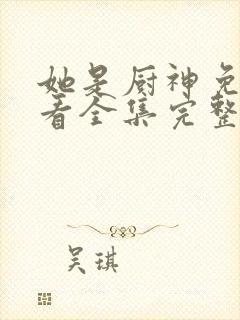 她是厨神免
看全集完整
吴琪